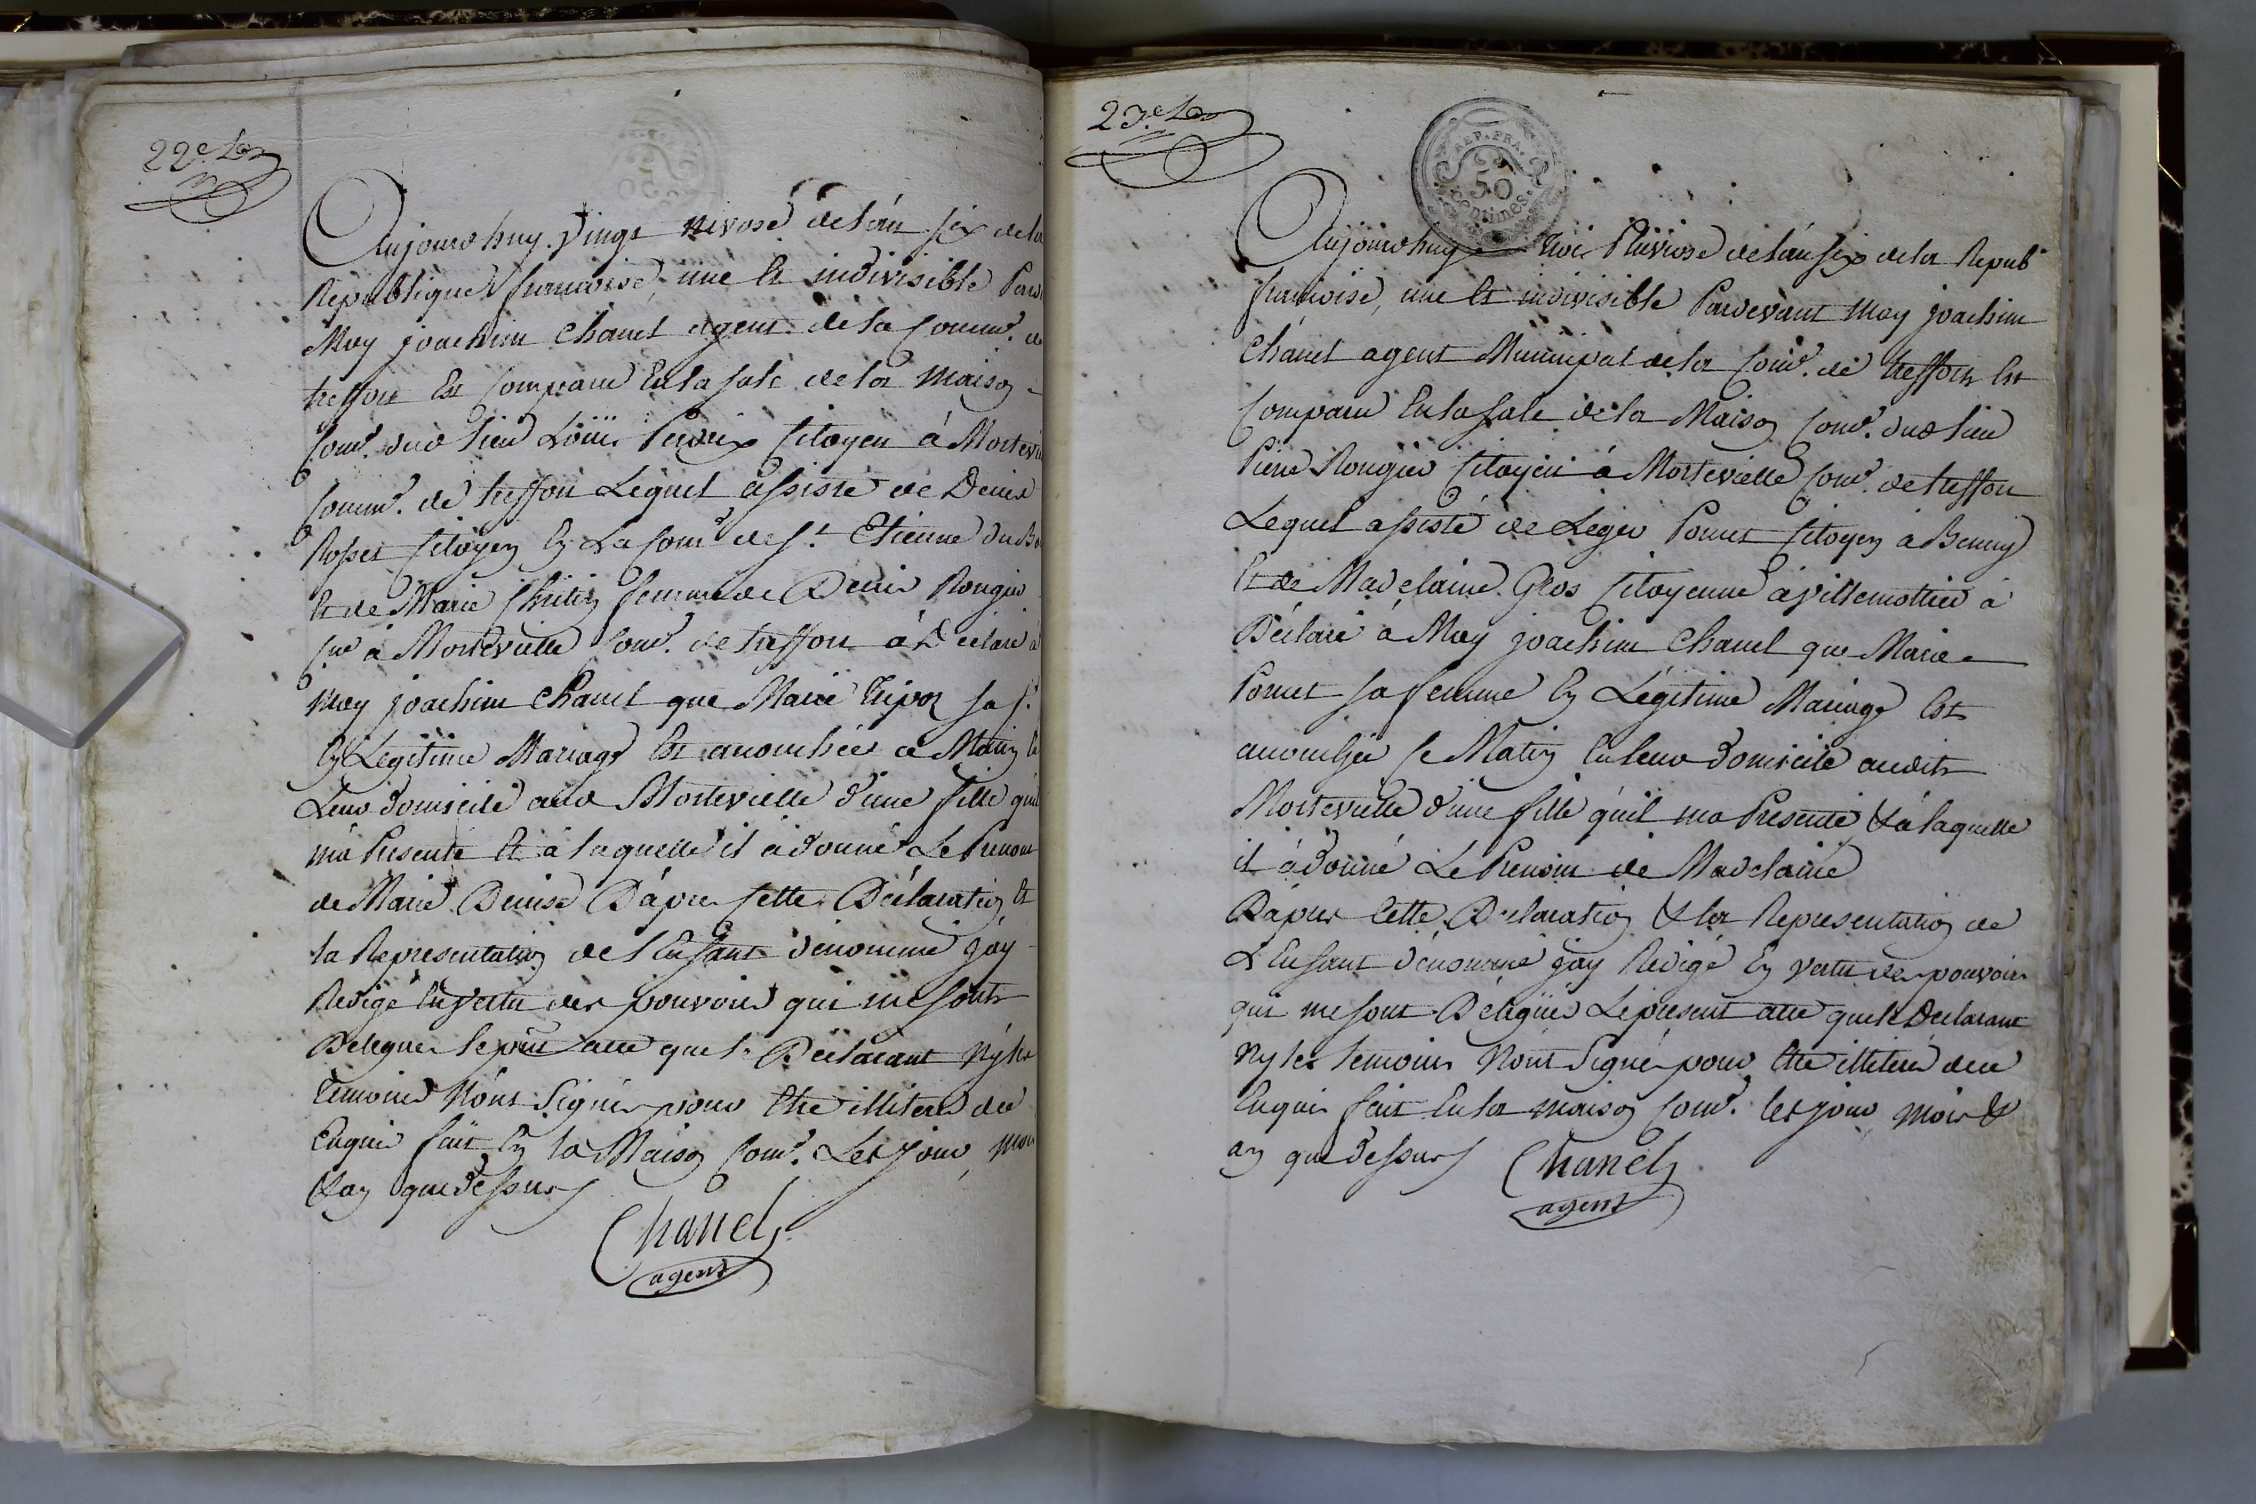 22e
Aujourdhuy Vingt nivose de l'an six de la
Republique francoise, une et indivisible Pard
Moy joachim Chanel agent de la Comme. de
treffort Est Comparu En la sale de la Maison
Come. dud lieu Louis Perdrix Citoyen á Mortevi
Comme. de treffort Lequel assisté de Denis
Rosset Citoyen En La Come de St. Etienne du Bo
Et de Marie femme de Denis Rougier
á Mortevielle Come. de treffort á Déclaré á
moy joachim Chanel que Marie Tripoz sa f.
En Legitime Mariage Est accouchée ce Matin En
Leur domicile aud Mortevielle d'une fille quil
má Presenté Et á laquelle il á donné Le Prenom
de Marie Denise D'áprès Cette Déclaration Et
la Representation de l'Enfant dénommé jáy
Redigé En Vertu des pouvoirs qui me sont
Delegués le pnt acte que le Déclarant Ny les
temoins N'ónt Signés pour Etre illiterés de ce
Enquis fait En la Maison Come. Les jour, mois
& an que dessus
Chanel
agent
23e
REP. FRA.
50
Centimes
Aujourdhuy troi Pluviose de l'án six de la Repub
francoise, une Et indivisible Pardevant Moy joachim
Chanel agent Municipal de la Come. de treffort Est
Comparu En la sale de la Maison Come. dud lieu
Pierre Rougier Citoyen á Mortevielle Come. de treffort
Lequel assisté de Leger Pornet Citoyen á Benny
Et de Madelaine Gros Citoyenne á villemottier á
Déclaré á Moy joachim Chanel que Marie
Pornet sa femme En Légitime Mariage Est
accouchée ce Matin En leur domicile audit
Mortevielle d'une fille quil ma Presenté & á laquelle
il á donné Le Prenom de Madelaine
D'áprès Cette Déclaration & la Representation de
L'Enfant dénommé jáy Redigé En vertu des pouvoirs
qui me sont Délégués Le present acte que le Déclarant
Ny les temoins N'ont Signé pour Etre illiterés de ce
Enquis fait En la maison Come. les jour, mois &
an que dessus
Chanel
agent